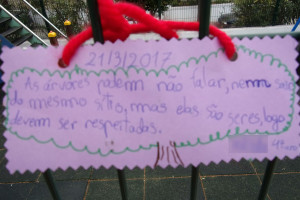 21/3/2017
As árvores podem não falar, nem sair
do mesmo sítio, mas elas são seres, logo
devem ser respeitadas.
4º ano